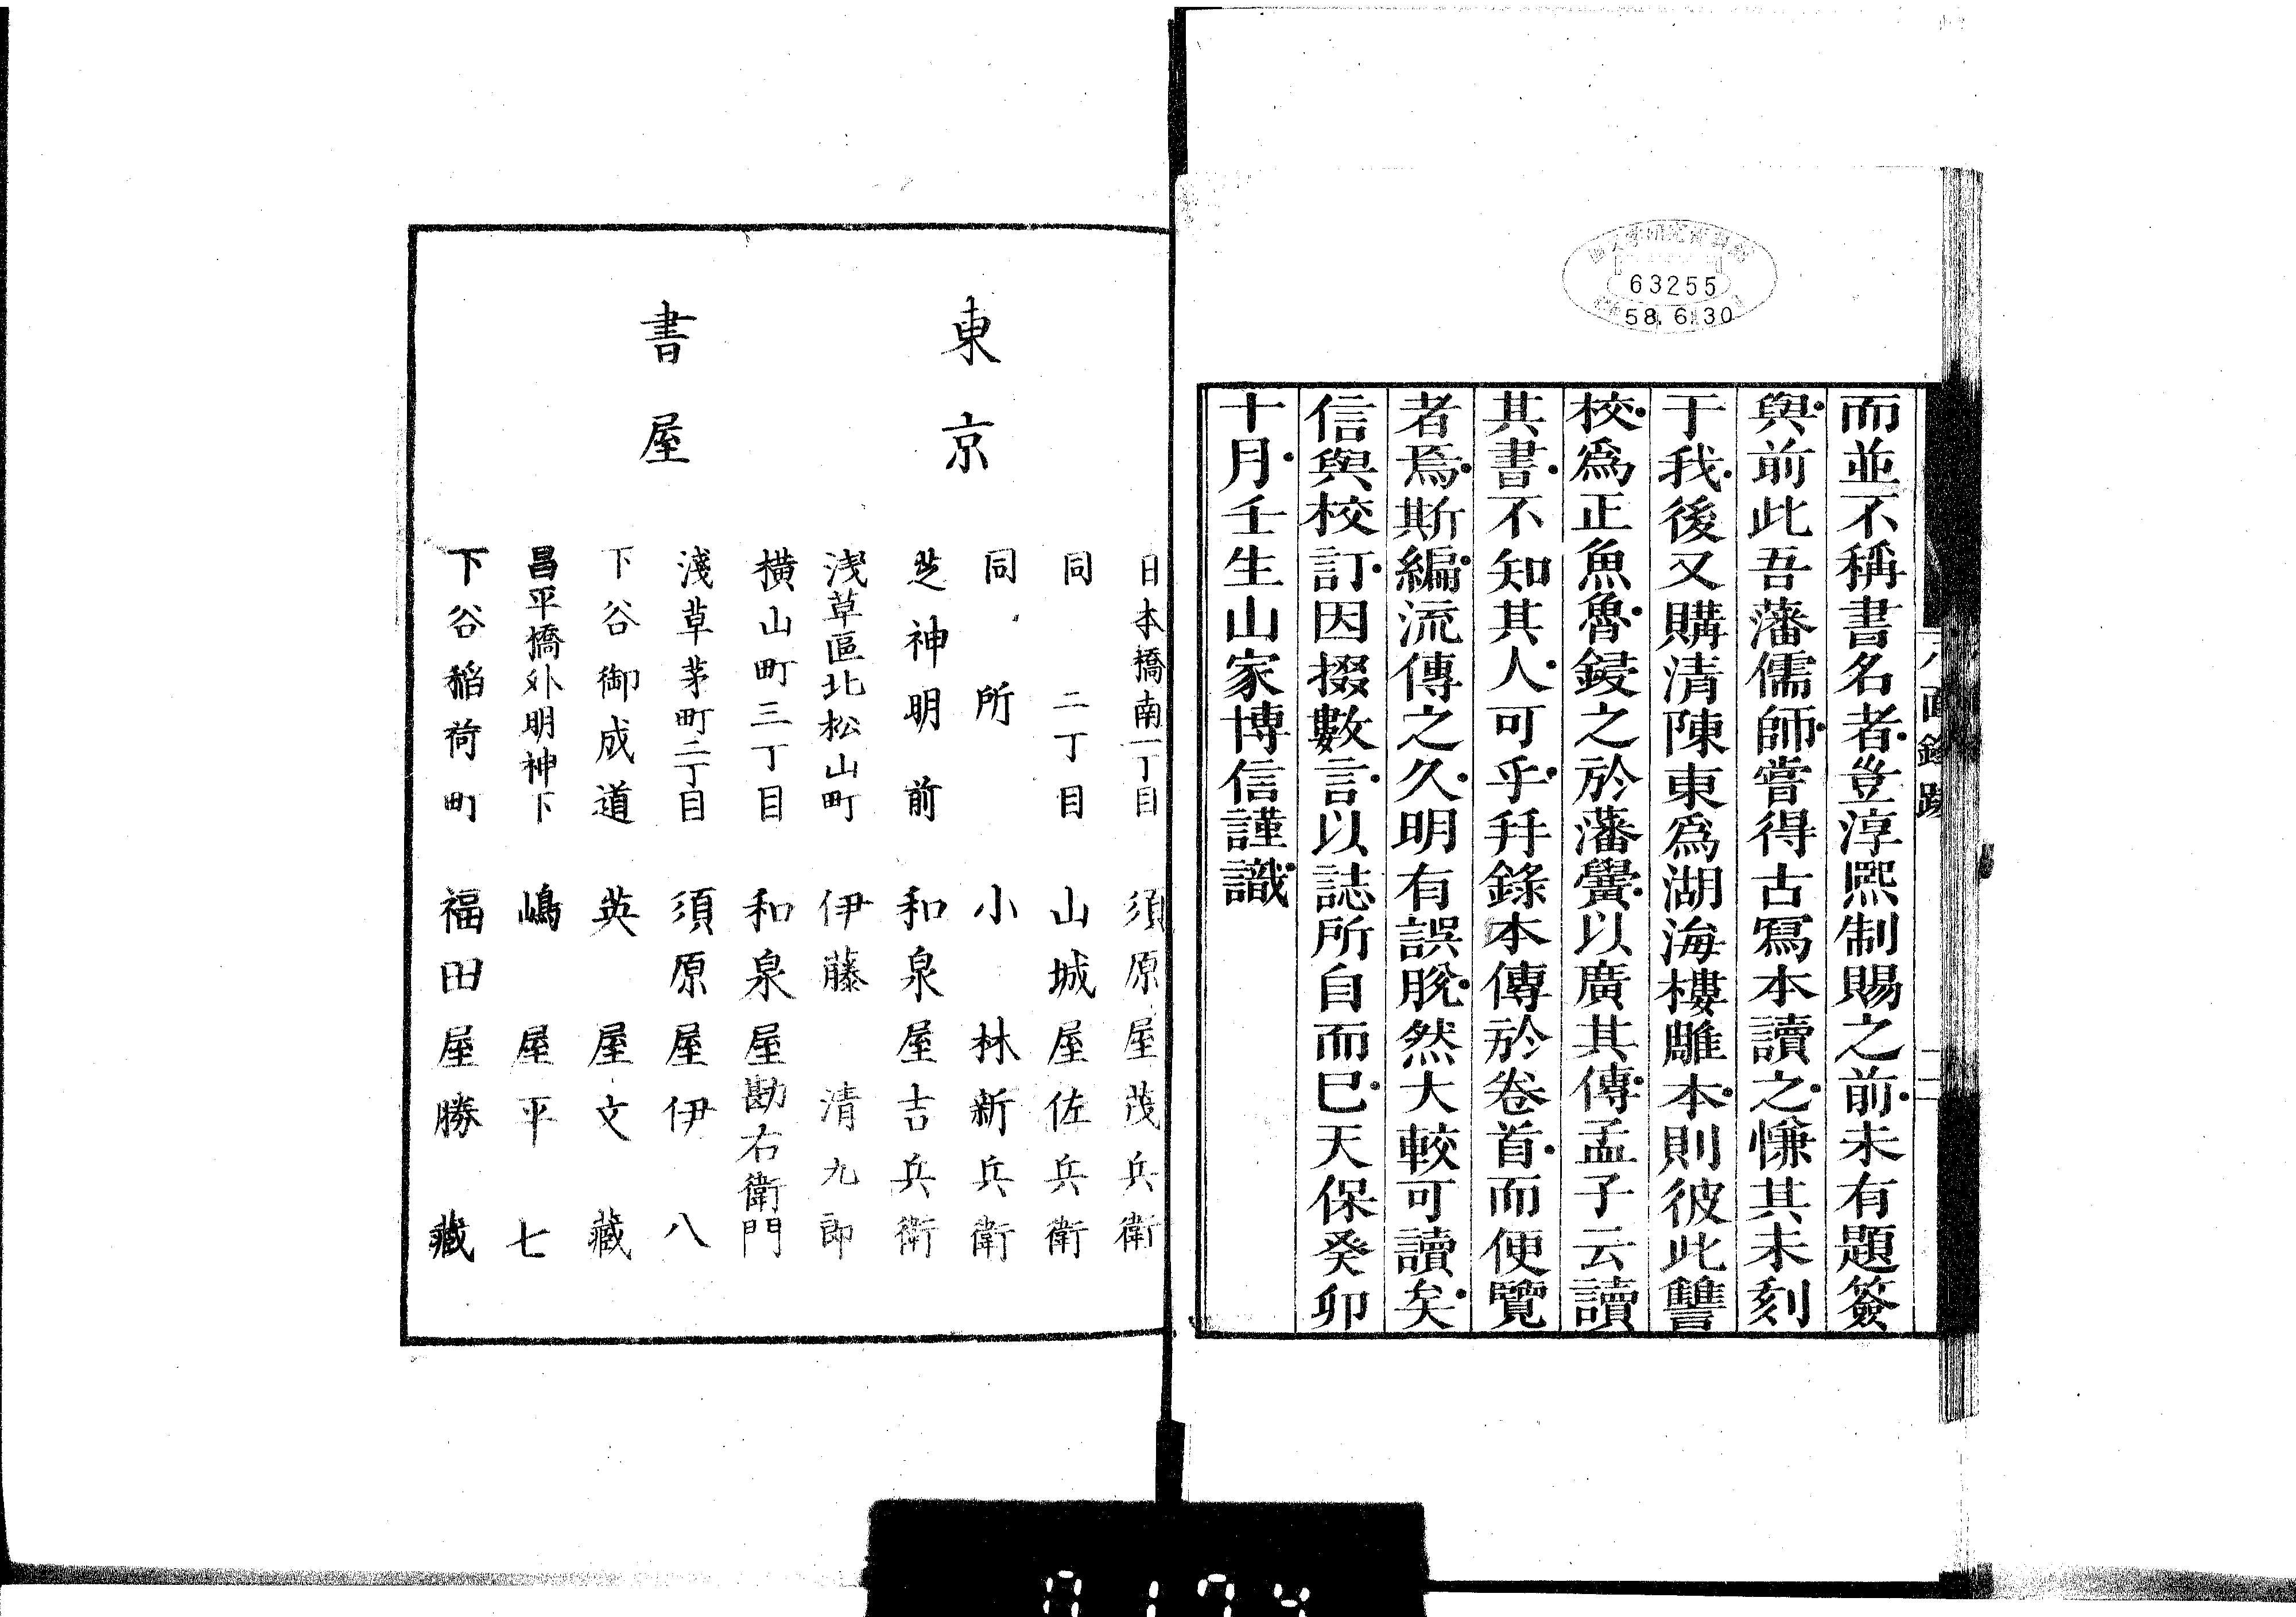 而並不稱書名者豈淳熙制賜之前未有題簽
與前此吾藩儒師嘗得古寫本讀之慊其未刻
于我後又購清陳東爲湖海樓雕本則彼此讐
校爲正魚魯鋟之於藩黌以廣其傳孟子云讀
其書不知其人可乎幷錄本傳於卷首而便覽
者焉斯編流傳之久明有誤脫然大較可讀矣
信與校訂因掇數言以誌所自而已天保癸卯
十月壬生山家博信謹識
63255
58.6.30
東京
書屋
日本橋南一丁目 須原屋茂兵衛
同 二丁目 山城屋佐兵衛
同所 小林新兵衛
芝神明前 和泉屋吉兵衛
浅草區北松山町 伊藤清九郎
横山町三丁目 和泉屋勘右衛門
淺草茅町二丁目 須原屋伊八
下谷御成道 英屋文藏
昌平橋外明神下 嶋屋平七
下谷稲荷町 福田屋勝藏